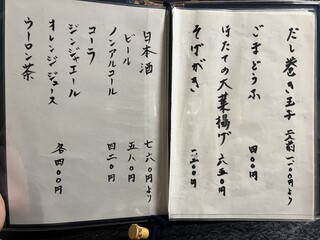 だし巻き玉子 二人前 一、二〇〇円より
ごまどうふ 四〇〇円
ほたての大葉揚げ 六五〇円
そばがき 一、二〇〇円
日本酒 七六〇円より
ビール 五八〇円
ノンアルコール 四二〇円
コーラ
ジンジャエール
オレンジジュース
ウーロン茶
各四〇〇円